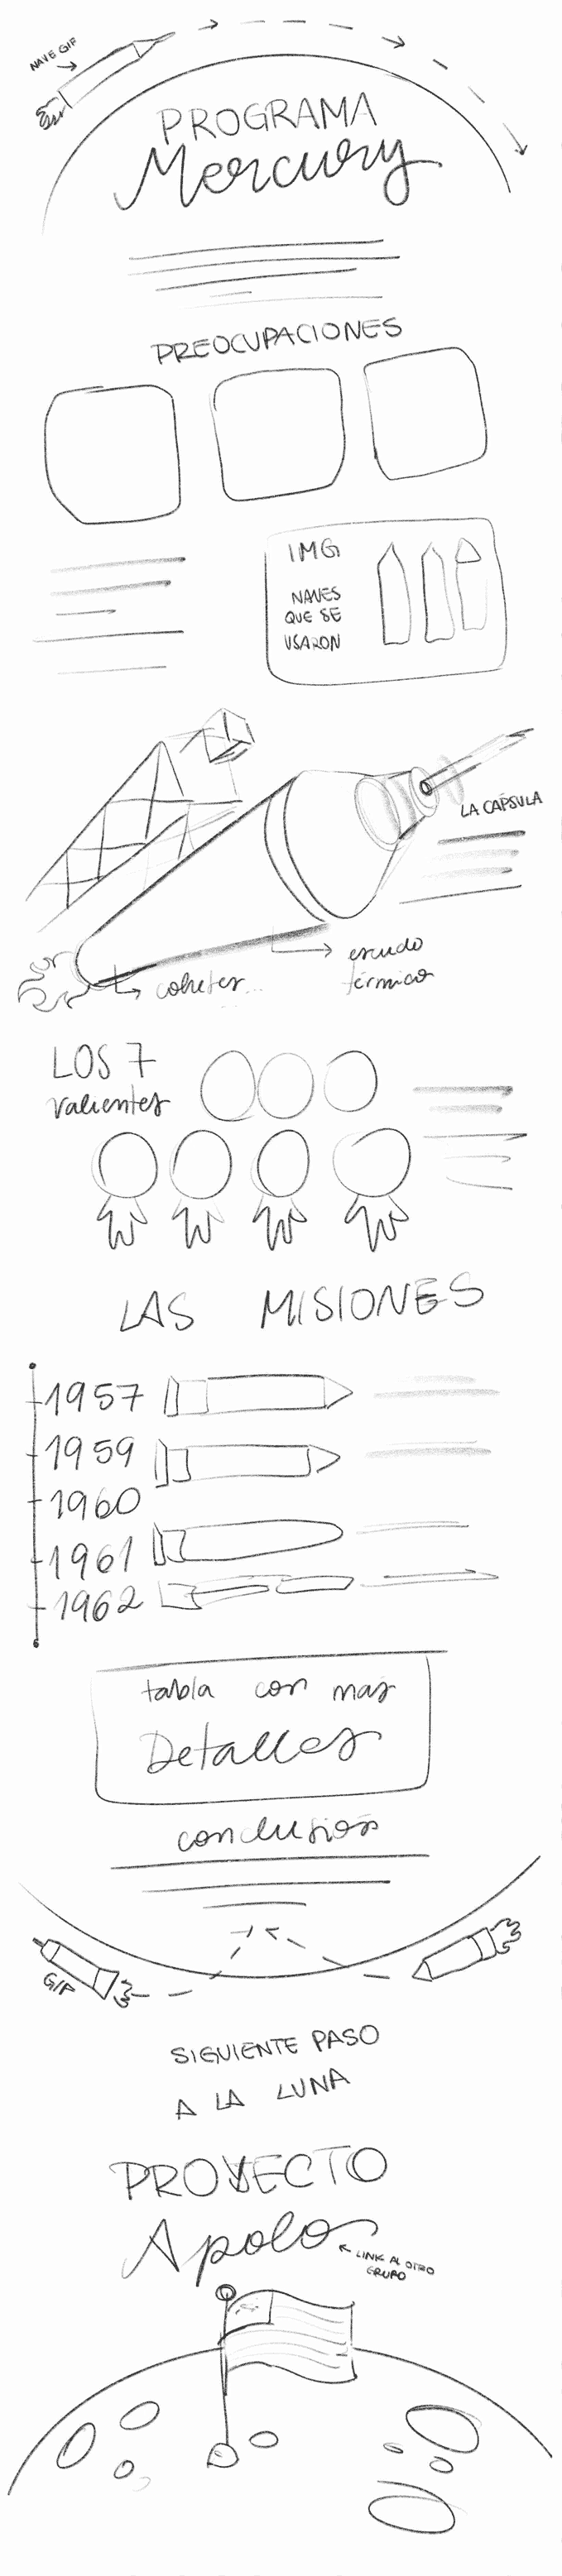 NAVE GIF
PROGRAMA
Mercury
PREOCUPACIONES
IMG
NAVES
QUE SE
USARON
LA CÁPSULA
escudo
térmico
cohetes...
LOS 7
valientes
LAS MISIONES
1957
1959
1960
1961
1962
tabla con mas
Detalles
conclusion
GIF
SIGUIENTE PASO
A LA LUNA
PROYECTO
Apolo
LINK AL OTRO
GRUPO